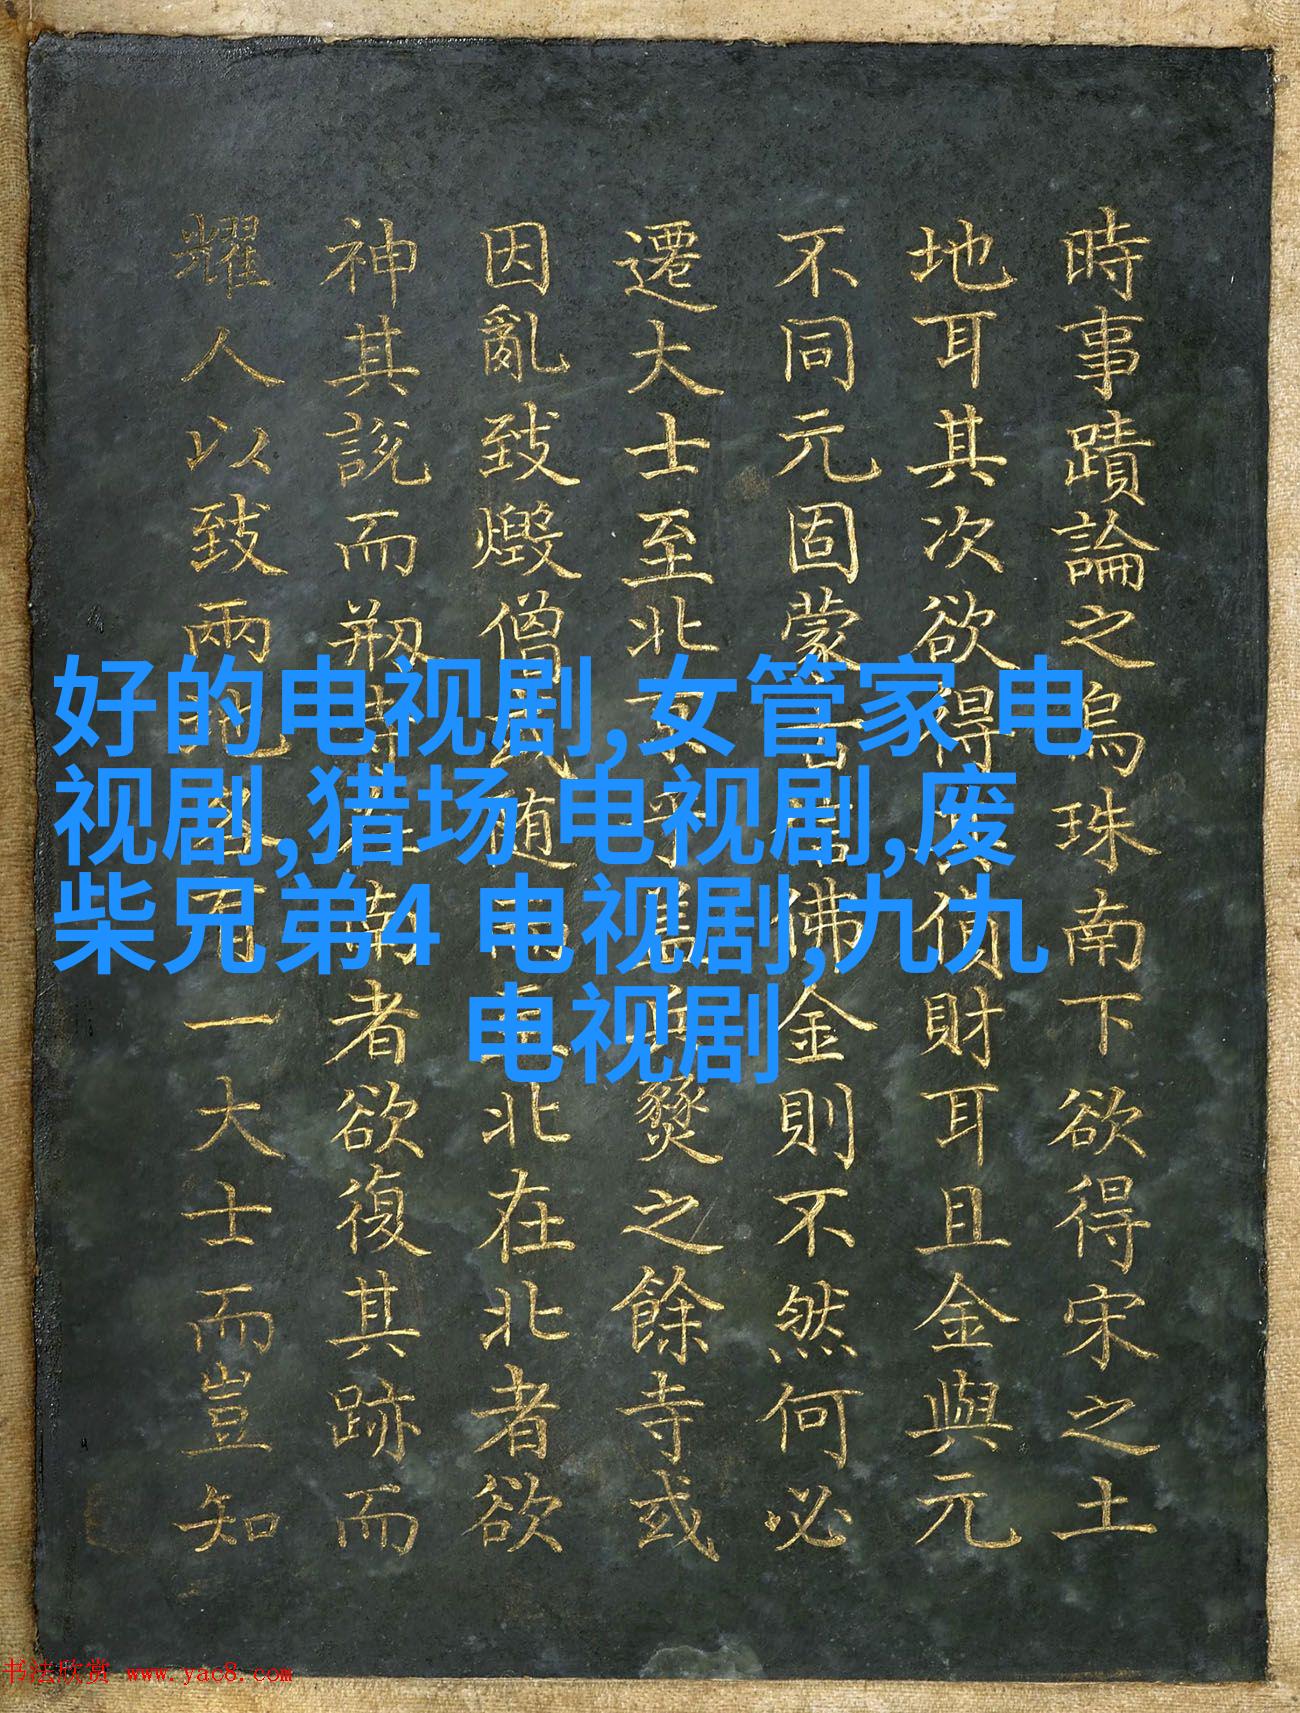 時事蹟論之烏珠南下欲得宋之土
地耳其次欲得財耳且金與元
不同元固蒙古佛金則不然何必
遷大士至北京乎燹之餘寺或
因亂致燬僧或随北在北者欲
神其說而在南者欲復其跡而
耀人以致兩地各有一大士而豈知
好的电视剧,女管家 电
视剧,猎场 电视剧,废
柴兄弟4 电视剧,九九
电视剧
书法欣赏 www.yac8.com